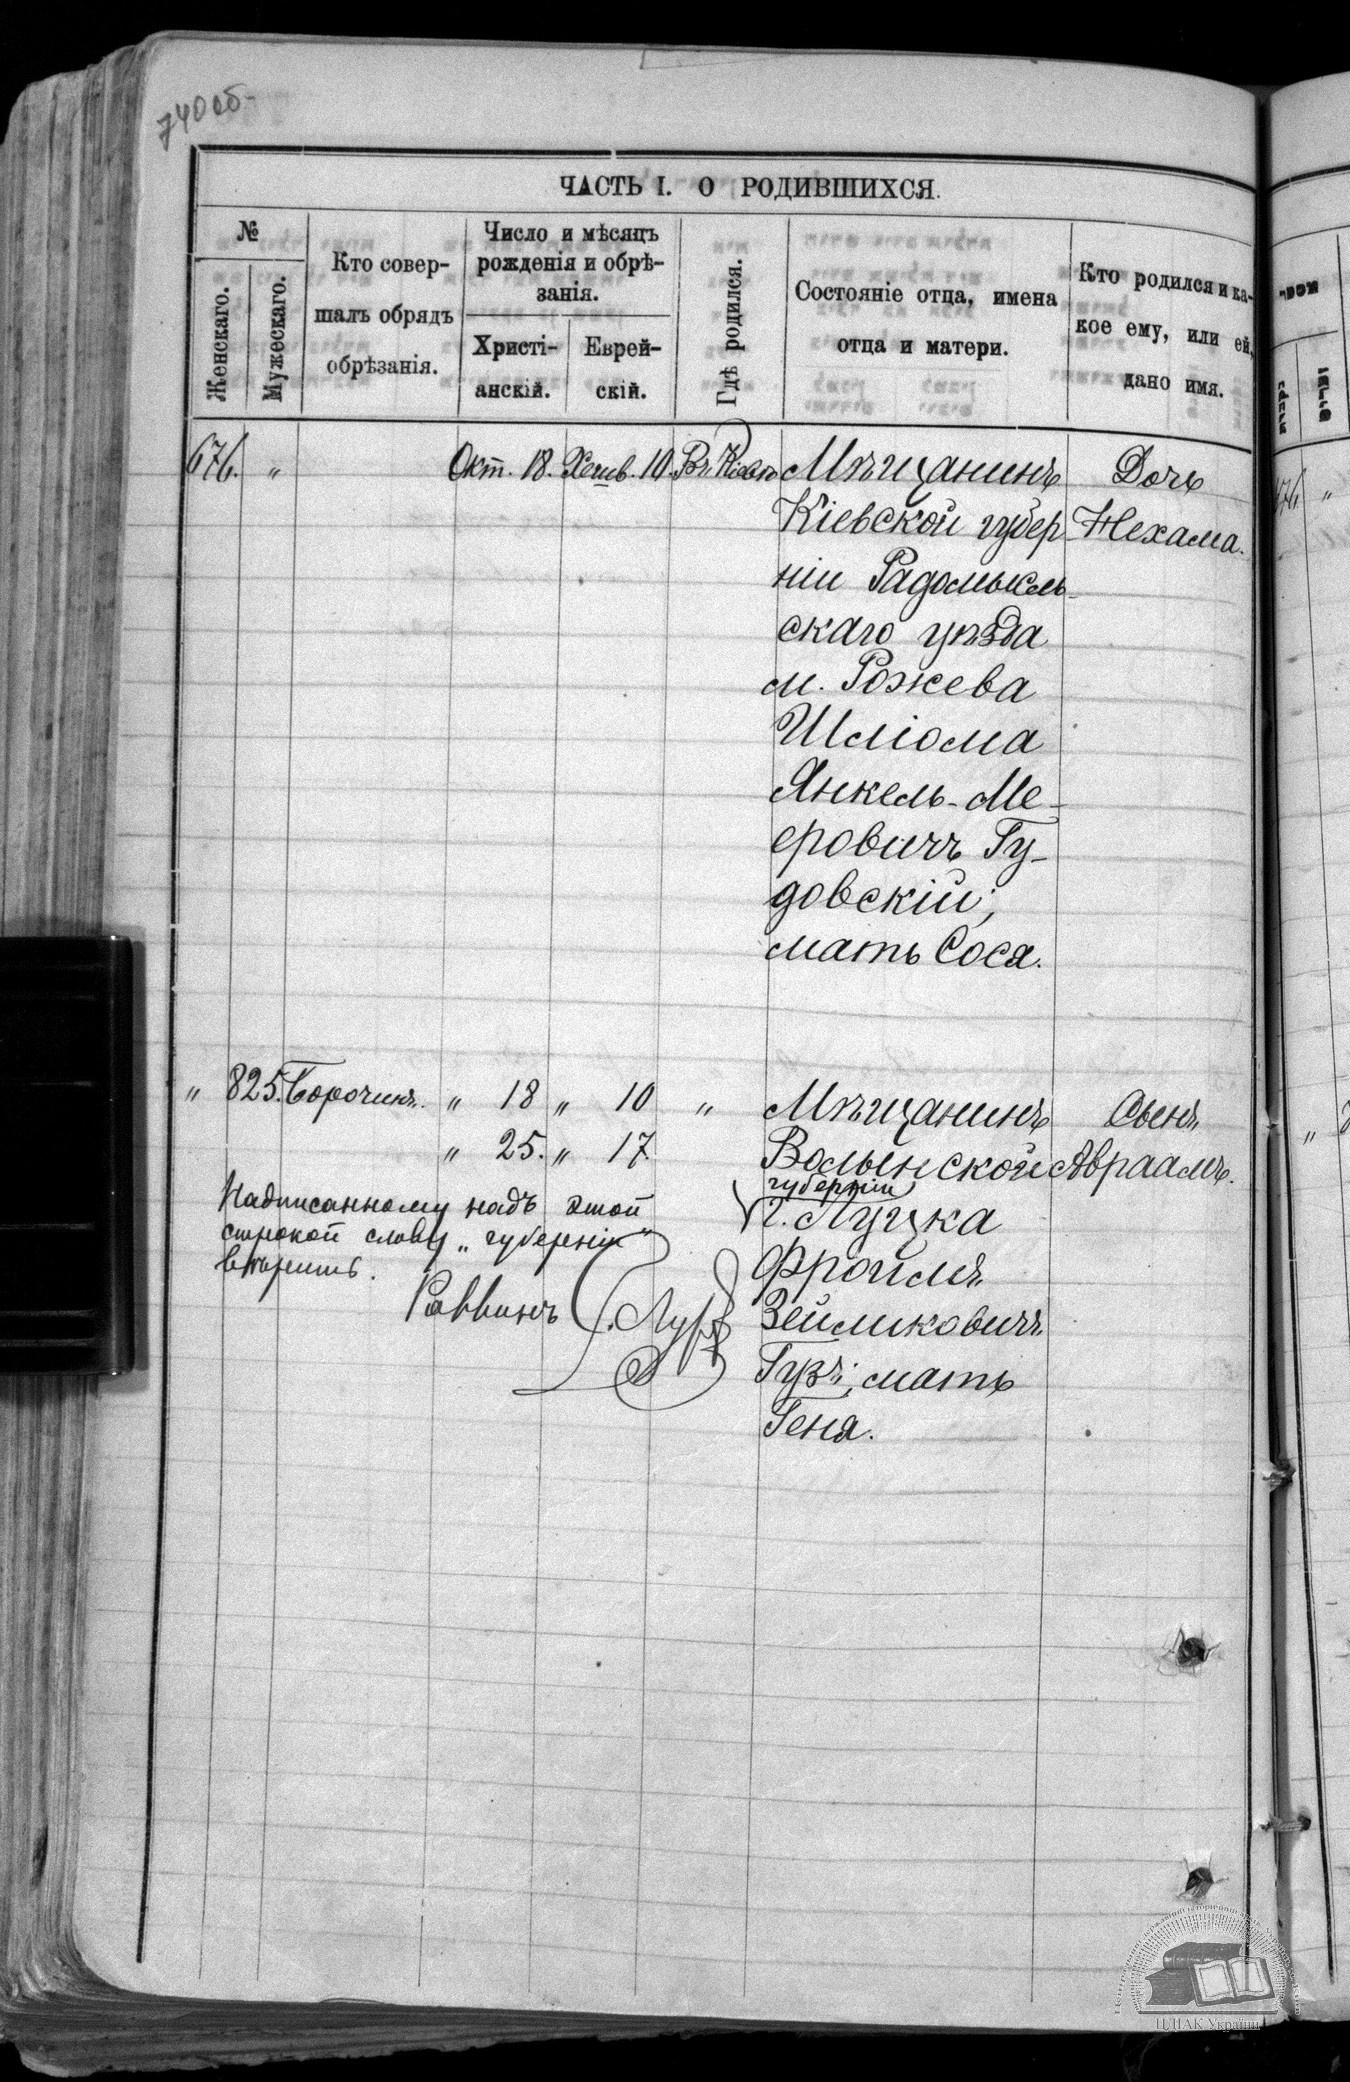 740 об-
ЧАСТЬ I. О РОДИВШИХСЯ.
№
Женскаго.
Мужескаго.
Кто совер-
шалъ обрядъ
обрѣзанія.
Число и мѣсяцъ
рожденія и обрѣ-
занія.
Христі-
анскій.
Еврей-
скій.
Гдѣ родился.
Состояніе отца, имена
отца и матери.
Кто родился и ка-
кое ему, или ей,
дано имя.
676. " Окт. 18. Хешв. 10. Въ Кіевѣ Мѣщанинъ Дочь
Кіевской губер Нехама.
ніи Радомысль-
скаго уѣзда
м. Рожева
Шліома
Янкель-Ме-
еровичъ Гу-
довскій;
мать Сося.
" 825. Борочинъ. " 18 " 10 " Мѣщанинъ Сынъ
" 25. " 17. Волынской Авраамъ.
губерніи
г. Луцка
Фроимъ
Зейликовичъ
Гузъ; мать
Геня.
Надписанному надъ этой
строкой слову „губерніи"
вѣрить.
Раввинъ
ЦДІАК України